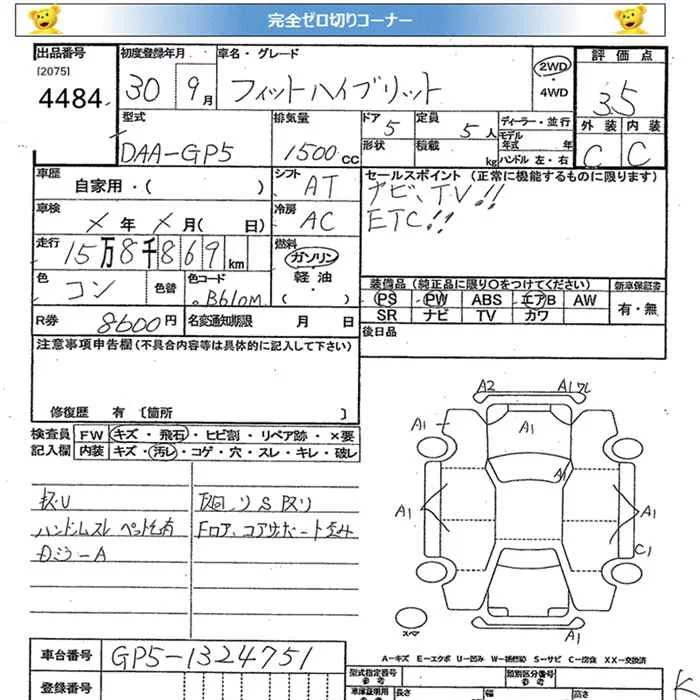 完全ゼロ切りコーナー
出品番号 初度登録年月 車名・グレード 2WD 評価点
[2075] 30 9月 フィットハイブリット ・ 3.5
4484 4WD
型式 排気量 ドア 定員 ディーラー・並行 外装 内装
DAA-GP5 1500cc 5 5人 モデル年式 年 C C
形状 積載 kg ハンドル 左・右
車歴 自家用・( ) シフト AT セールスポイント (正常に機能するものに限ります)
ナビ、TV!!
車検 × 年 × 月( 日) 冷房 AC ETC!!
走行 15万8千869km 燃料 ガソリン
軽油
・( )
色 コン 色替 色コード B610M 装備品 (純正品に限り○をつけてください) 新車保証書
PS PW ABS エアB AW 有・無
R券 8600円 名変通知期限 月 日 SR ナビ TV カワ
注意事項申告欄(不具合内容等は具体的に記入して下さい) 後日品
修復歴 有 [箇所 ]
検査員 FW キズ・飛石・ヒビ割・リペア跡・×要
記入欄 内装 キズ・汚レ・コゲ・穴・スレ・キレ・破レ
A2 A1ワレ
A1 A1
A1
A1 A1
C1
スペア A1
ハンドルスレ ペット毛有
Dミラ-A
車台番号 GP5-1324751
A-キズ E-エクボ U-凹み W-補修跡 S-サビ C-腐食 XX-交換済
登録番号 型式指定番号 参考 類別区分番号 参考
車庫証明用 長さ 幅 高さ